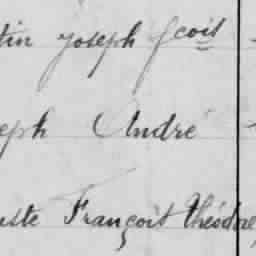 tin Joseph fcois
eph André
uste François théodore